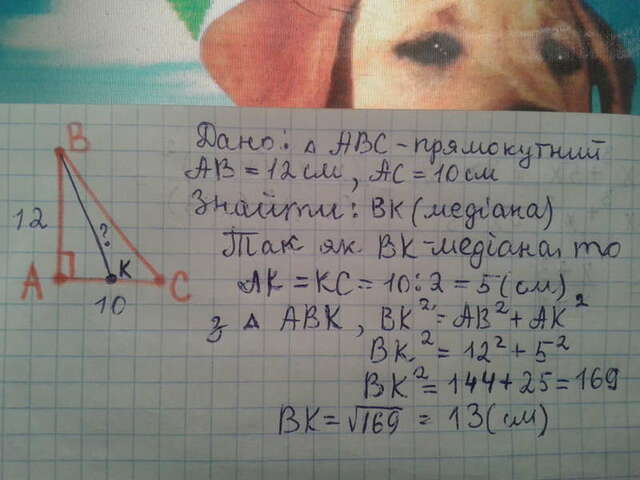 B
12
?
A
K
C
10
Дано: △ ABC - прямокутний
AB = 12 см, AC = 10 см
Знайти: BK (медіана)
Так як BK - медіана, то
AK = KC = 10 : 2 = 5 (см)
З △ ABK, BK² = AB² + AK²
BK² = 12² + 5²
BK² = 144 + 25 = 169
BK = √169 = 13 (см)